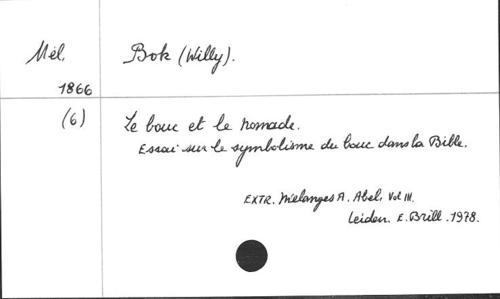 Mél. Bok (Willy).
1866
(6) Le bouc et le nomade.
Essai sur le symbolisme du bouc dans la Bible.
EXTR. Mélanges A. Abel, Vol III.
Leiden. E. Brill. 1978.